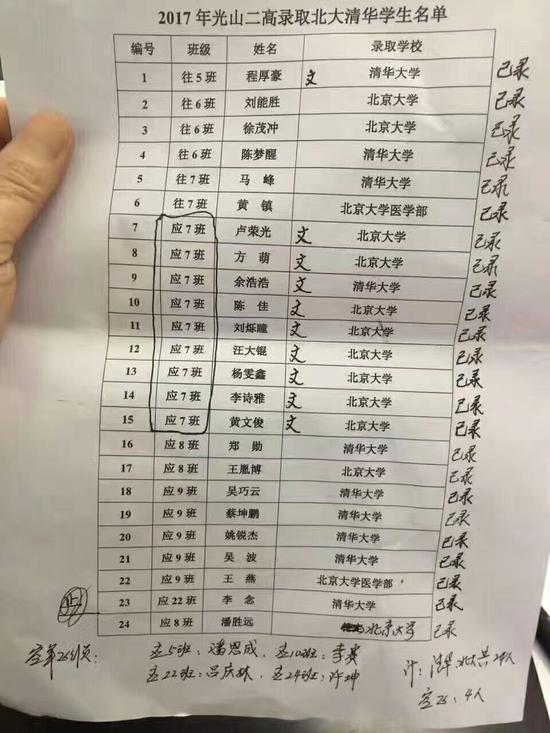 2017年光山二高录取北大清华学生名单
编号 班级 姓名 录取学校
1 往5班 程厚豪 文 清华大学 已录
2 往6班 刘能胜 北京大学 已录
3 往6班 徐茂冲 北京大学 已录
4 往6班 陈梦醒 清华大学 已录
5 往7班 马峰 清华大学 已录
6 往7班 黄镇 北京大学医学部 已录
7 应7班 卢荣光 文 北京大学 已录
8 应7班 方萌 文 北京大学 已录
9 应7班 余浩浩 文 清华大学 已录
10 应7班 陈佳 文 北京大学 已录
11 应7班 刘烁瞳 文 北京大学 已录
12 应7班 汪大锟 文 北京大学 已录
13 应7班 杨雯鑫 文 北京大学 已录
14 应7班 李诗雅 文 北京大学 已录
15 应7班 黄文俊 文 北京大学 已录
16 应8班 郑勋 清华大学 已录
17 应8班 王胤博 北京大学 已录
18 应9班 吴巧云 清华大学 已录
19 应9班 蔡坤鹏 清华大学 已录
20 应9班 姚锐杰 清华大学 已录
21 应9班 吴波 清华大学 已录
22 应9班 王燕 北京大学医学部 已录
23 应22班 李念 清华大学 已录
24 应8班 潘胜远 北京大学 已录
5班: 潘恩成, 10班: 李
22班: 吕庆 24班: 许坤
计: 清华、北大共24人
4人